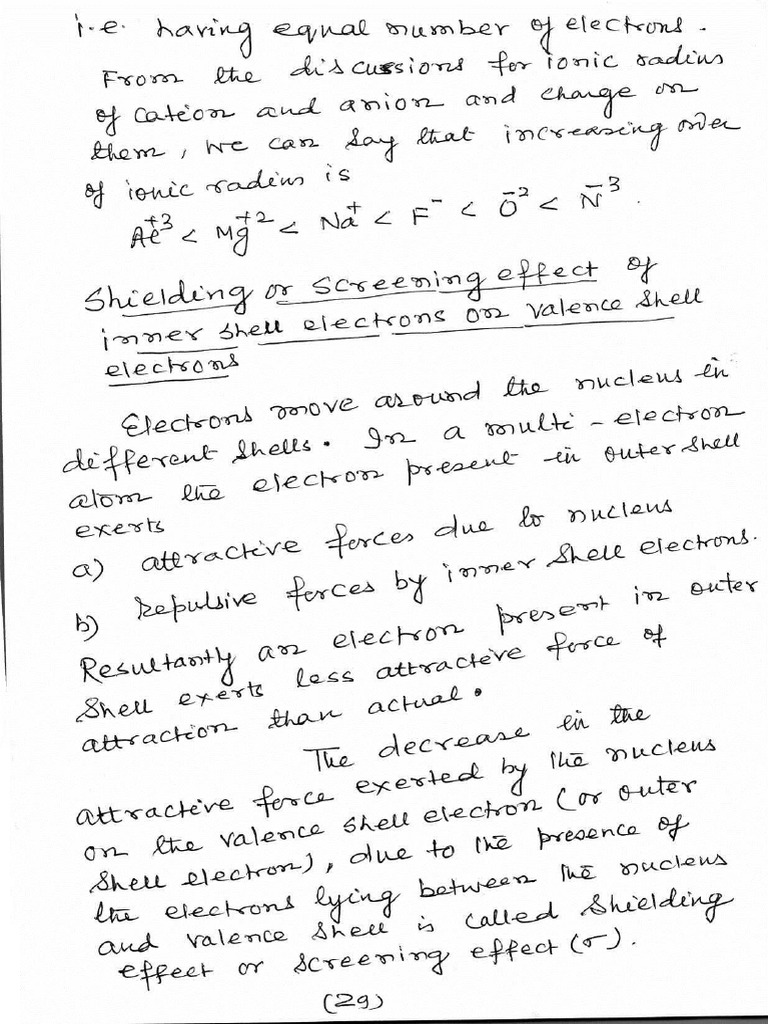 i.e. having equal number of electrons.
From the discussions for ionic radius
of cation and anion and charge on
them, we can say that increasing order
of ionic radius is
Al+3 < Mg+2 < Na+ < F- < O-2 < N-3.
Shielding or screening effect of
inner shell electrons on valence shell
electrons
Electrons move around the nucleus in
different shells. In a multi-electron
atom the electron present in outer shell
exerts
a) attractive forces due to nucleus
b) repulsive forces by inner shell electrons.
Resultantly an electron present in outer
shell exerts less attractive force of
attraction than actual.
The decrease in the
attractive force exerted by the nucleus
on the valence shell electron (or outer
shell electron), due to the presence of
the electrons lying between the nucleus
and valence shell is called Shielding
effect or screening effect (σ).
(29)